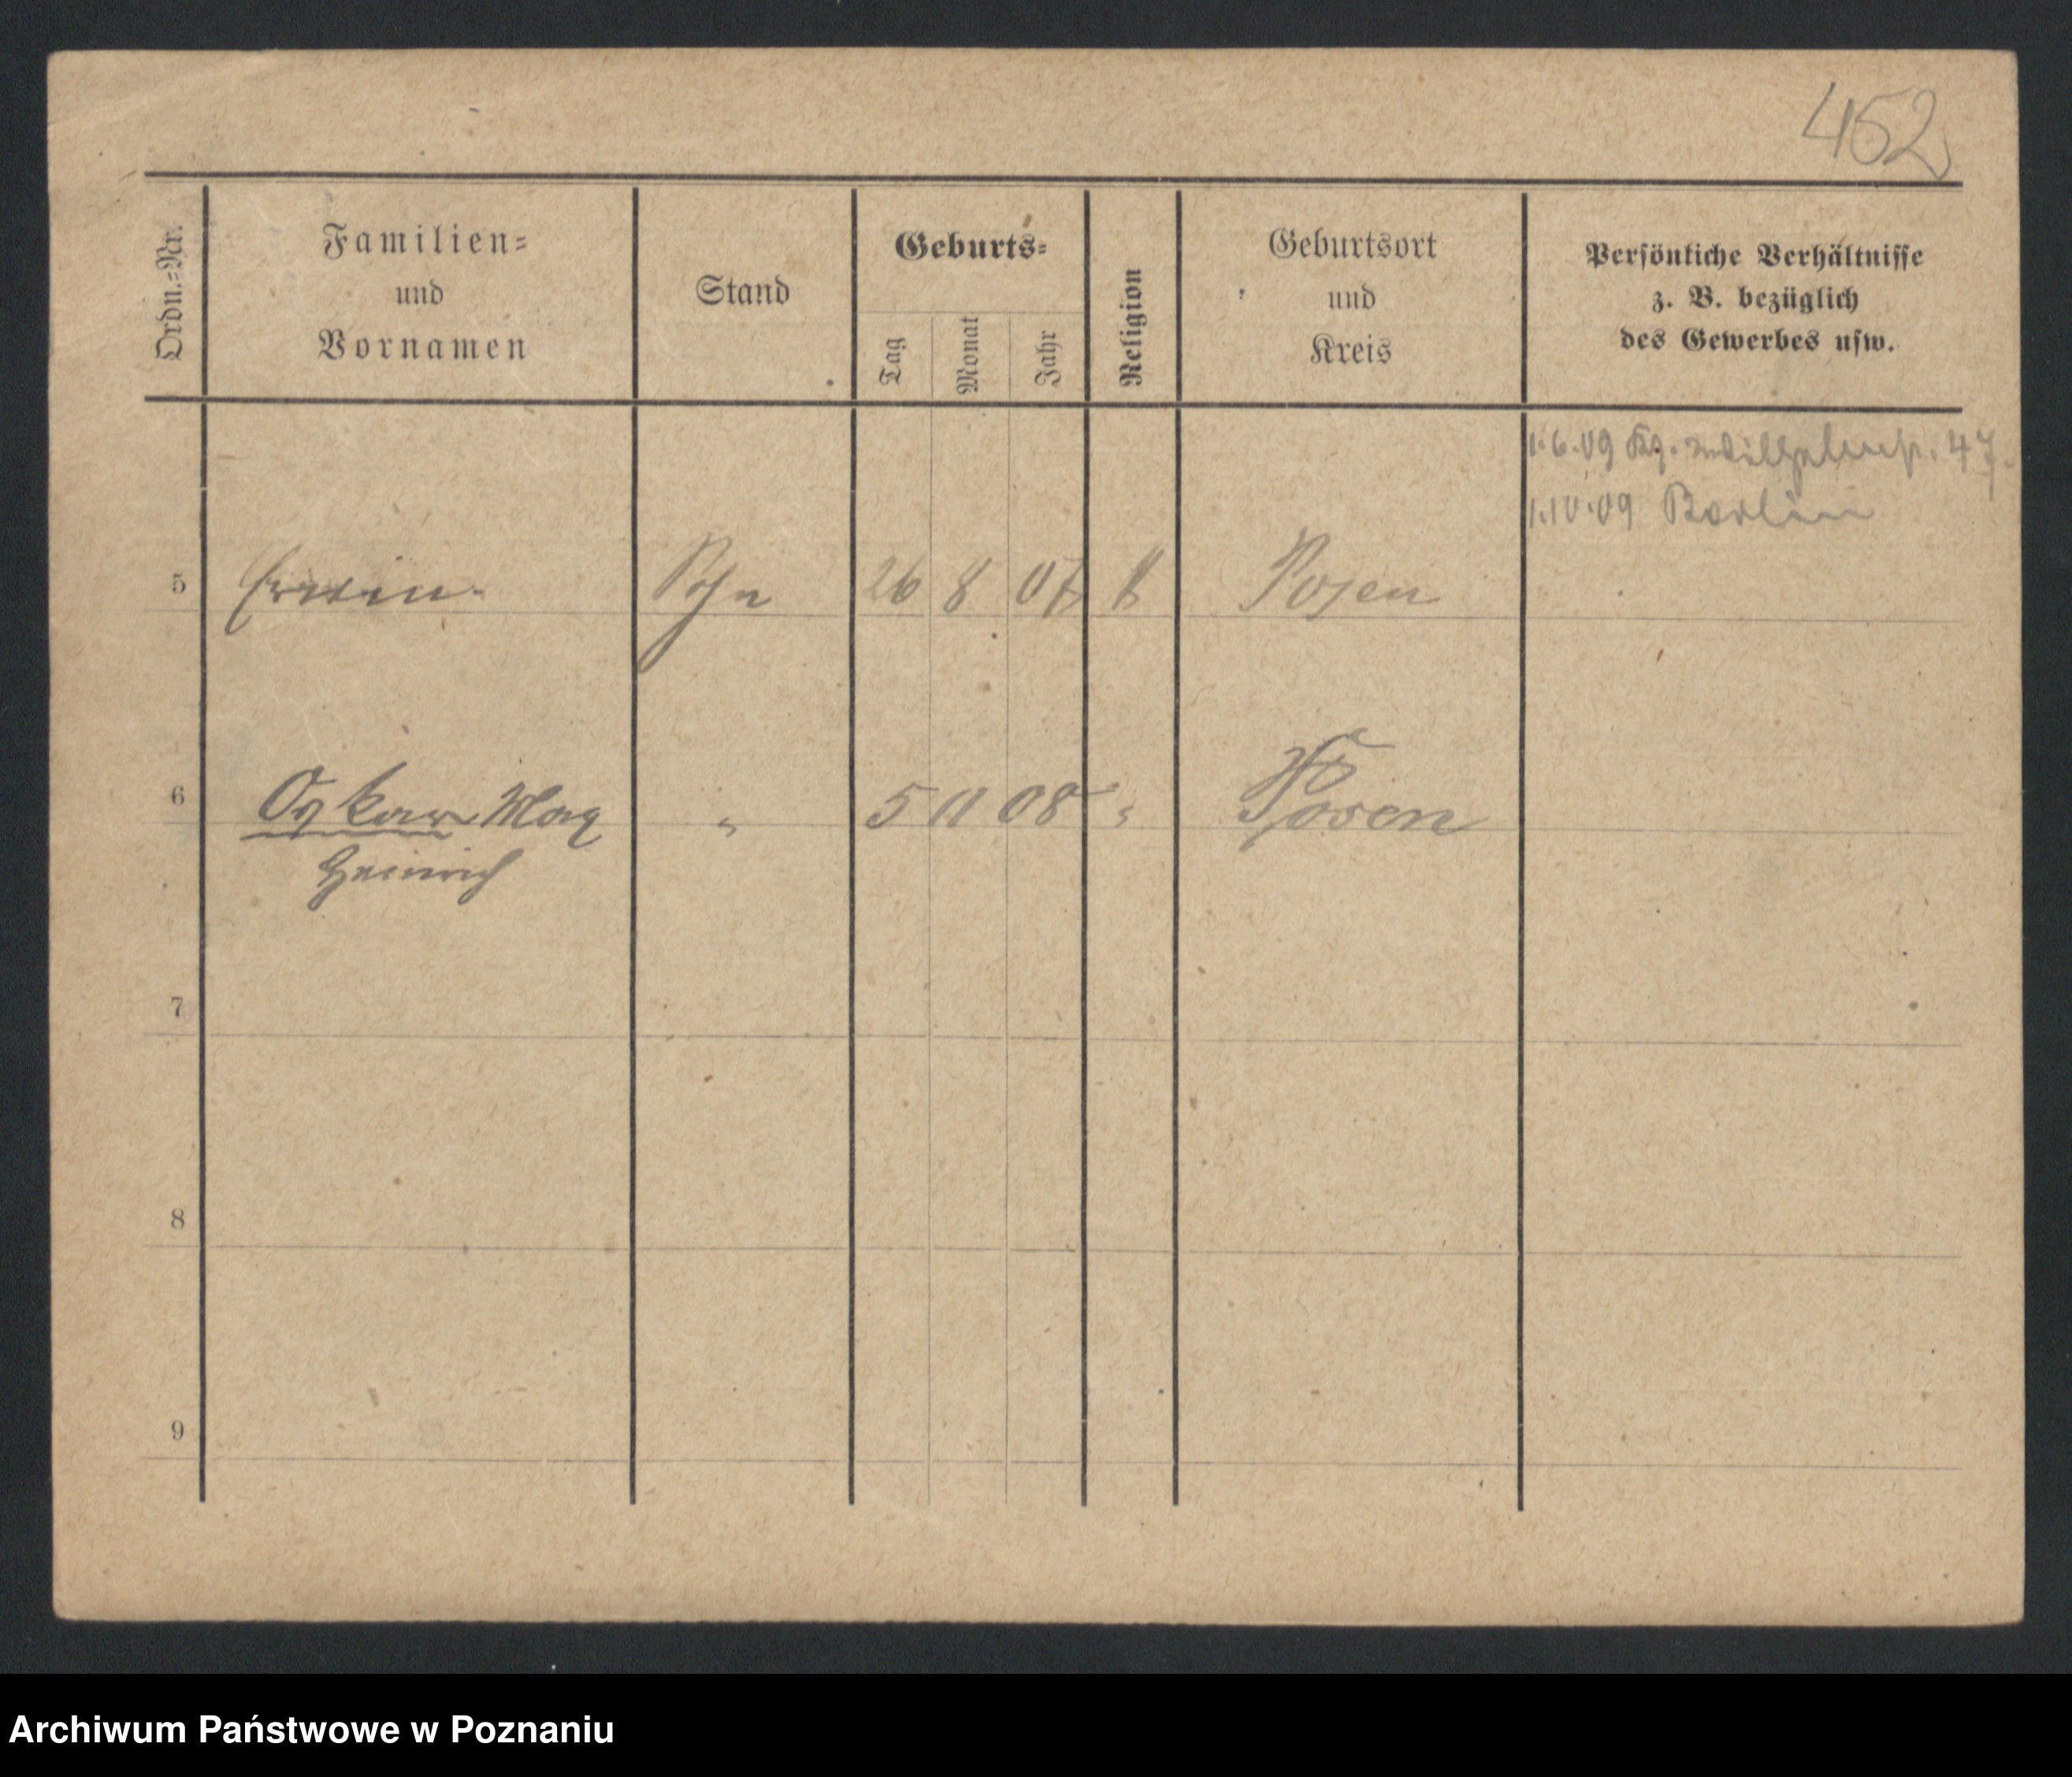 452
Ordn.=Nr.
Familien=
und
Vornamen
Stand
Geburts=
Tag
Monat
Jahr
Religion
Geburtsort
und
Kreis
Persönliche Verhältnisse
z. B. bezüglich
des Gewerbes usw.
1.6.09 Kg. Wilhelmstr. 47.
1.10.09 Berlin
5 Erwin Sohn 26 8 07 Posen
6 Oskar Max " 5 11 08 " Posen
Heinrich
7
8
9
Archiwum Państwowe w Poznaniu